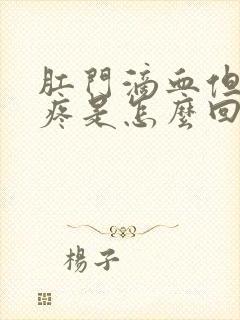 肛門滴血但
疼是怎麼回
楊子